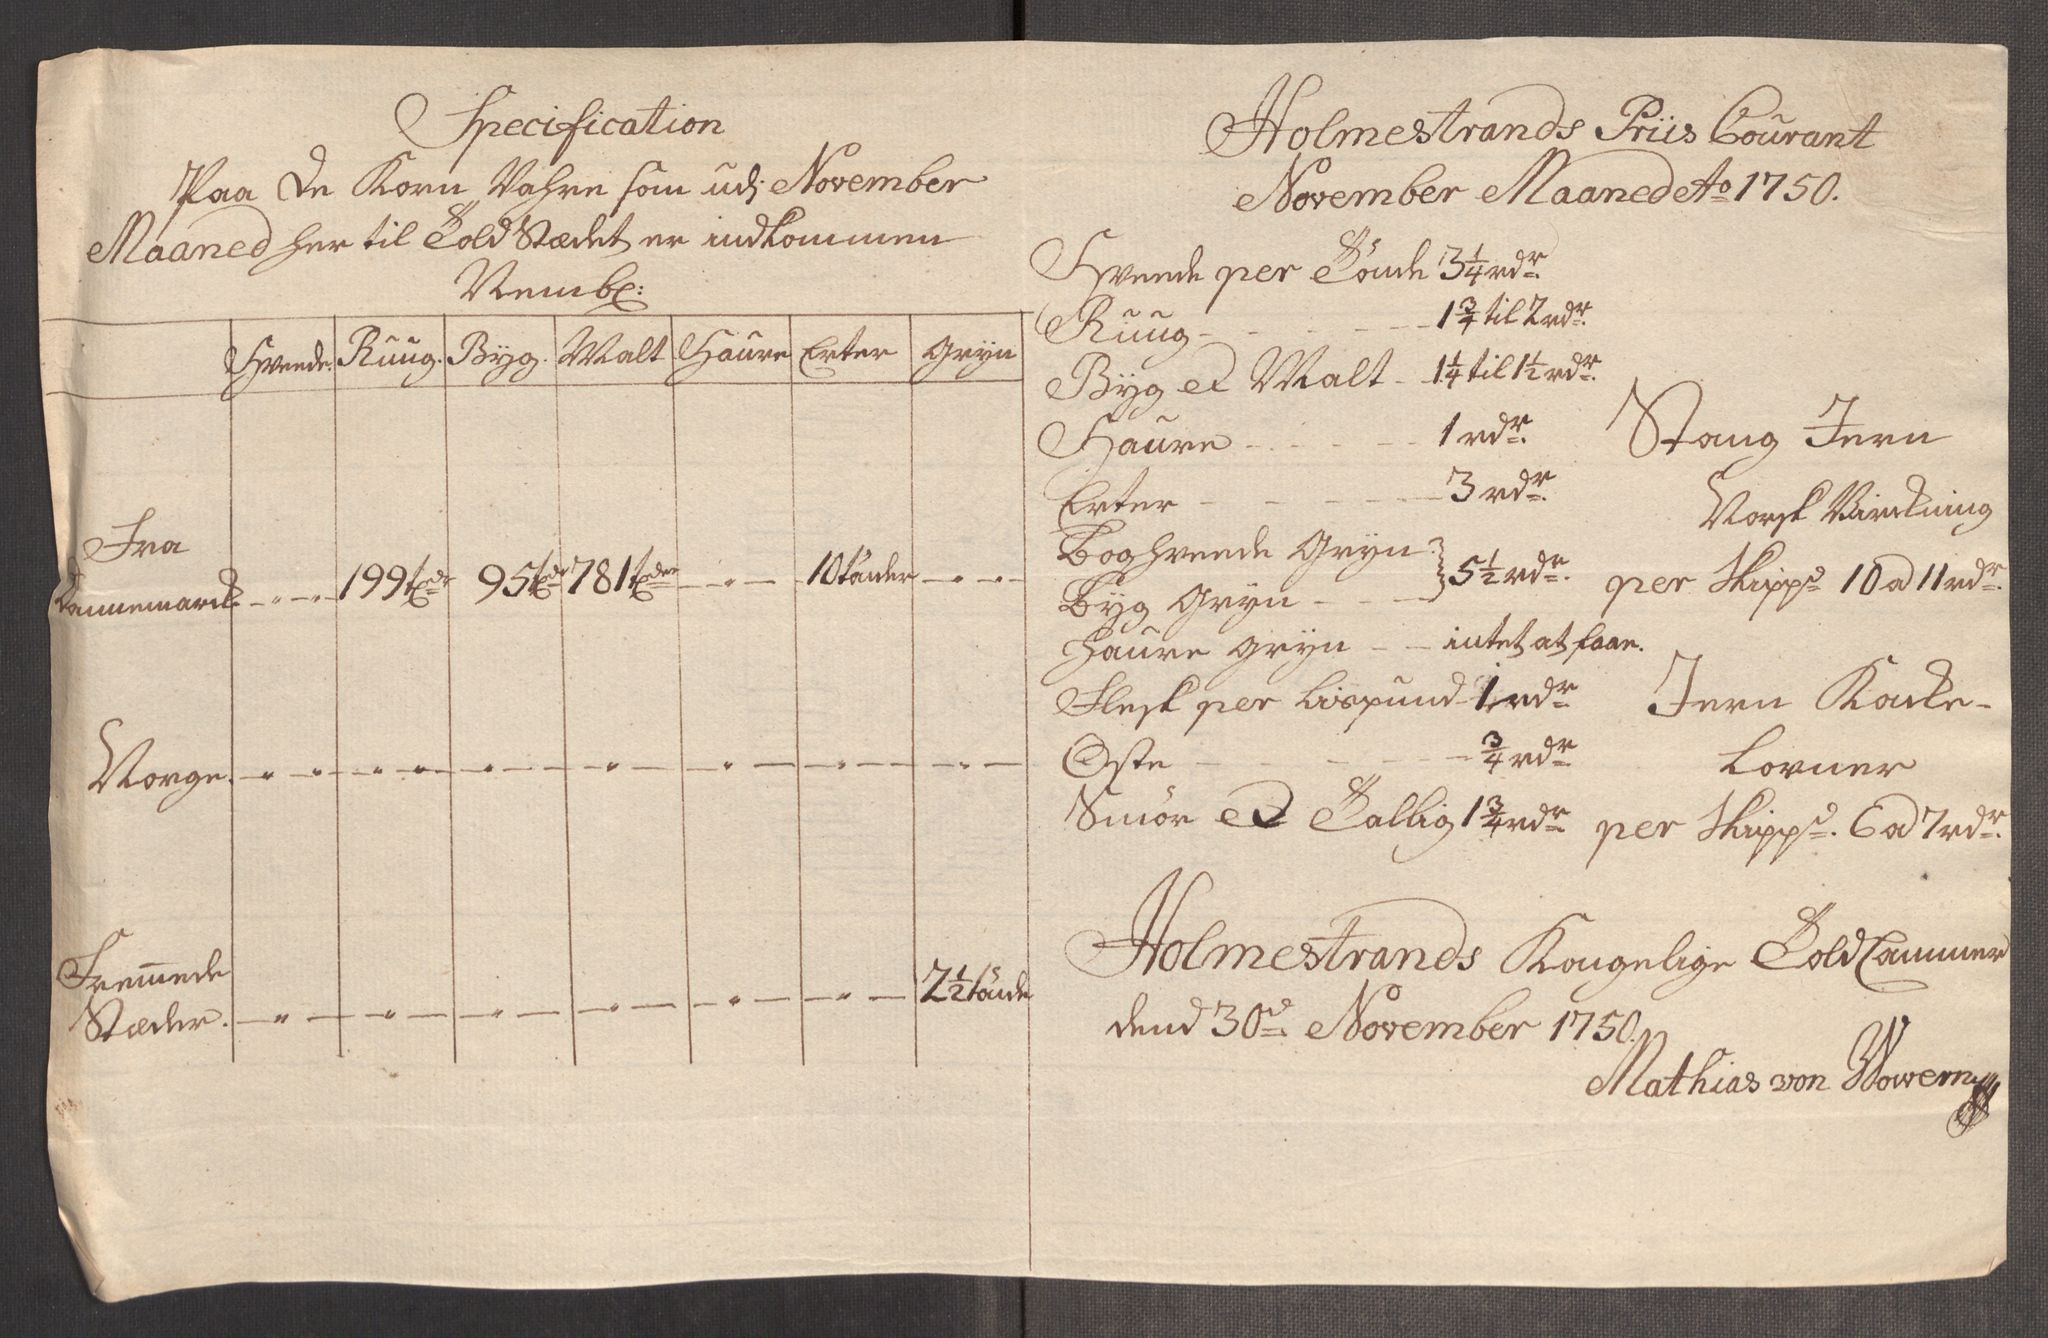 Specification
Paa de Korn Vahre som udj November
Maaned her til Told Stædet er indkommen
Nembl:
Hvede. Ruug. Byg. Malt Haure Erter Gryn
Fra
Dannemarck 199 tdr 95 tdr 781 tdr 10 tönder
Norge.
Fremmede
Stæder. 2 1/2 tönde
Holmestrands Priis Courant
November Maaned Ao 1750.
Hveede per Tönde 3 1/4 rdr.
Ruug 1 3/4 til 2 rdr.
Byg et Malt 1 1/4 til 1 1/2 rdr.
Haure 1 rdr.
Erter 3 rdr.
Boghveede Gryn
Byg Gryn 5 1/2 rdr.
Haure Gryn intet at faae.
Flesk per Lispund 1 rdr
Oste 3/4 rdr
Smör et Tallig 1 3/4 rdr
Stang Jern
Norsk Virckning
per Skippd 10 a 11 rdr.
Jern Kackel-
Lovner
per Skippd. 6 a 7 rdr.
Holmestrands Kongelige Told Cammer
dend 30d November 1750.
Mathias von Wowern